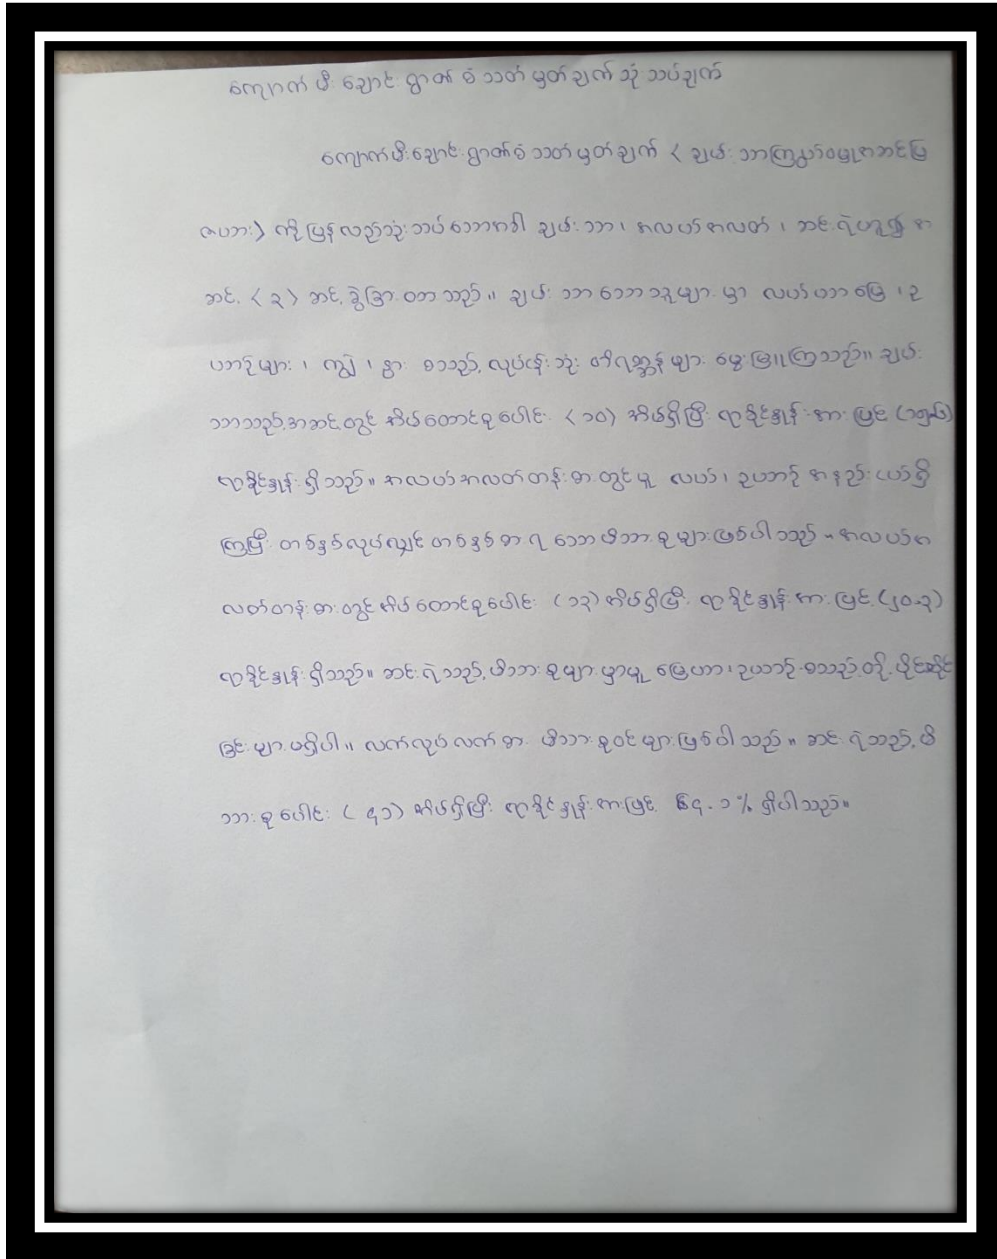 ကျောက်ဖီးချောင်းရွာ၏ စံသတ်မှတ်ချက်သုံးသပ်ချက်
ကျောက်ဖီးချောင်းရွာ၏ စံသတ်မှတ်ချက် (ချမ်းသာကြွယ်ဝမှုအဆင့်ပြ
ဇယား) ကို ပြန်လည်သုံးသပ်သောအခါ ချမ်းသာ၊ အလယ်အလတ်၊ ဆင်းရဲဟူ၍ အ
ဆင့် (၃) ဆင့်ခွဲခြားထားသည်။ ချမ်းသာသောသူများမှာ လယ်ယာမြေ၊ ဥ
ယာဉ်များ၊ ကျွဲ၊ နွား စသည့်လုပ်ငန်းသုံး တိရစ္ဆာန်များ မွေးမြူကြသည်။ ချမ်း
သာသည့်အဆင့်တွင် အိမ်ထောင်စုပေါင်း (၁၀) အိမ်ရှိပြီး ရာခိုင်နှုန်းအားဖြင့်
ရာခိုင်နှုန်းရှိသည်။ အလယ်အလတ်တန်းစားတွင်မူ လယ်၊ ဥယာဉ် အနည်းငယ်ရှိ
ကြပြီး တစ်နှစ်လုပ်လျှင် တစ်နှစ်စာရသော မိသားစုများဖြစ်ပါသည်။ အလယ်အ
လတ်တန်းစားတွင် အိမ်ထောင်စုပေါင်း (၁၃) အိမ်ရှိပြီး ရာခိုင်နှုန်းအားဖြင့် (၂၀.၃)
ရာခိုင်နှုန်းရှိသည်။ ဆင်းရဲသည့်မိသားစုများမှာမူ မြေယာ၊ ဥယာဉ် စသည့်တို့ ပိုင်ဆိုင်
ခြင်းများ မရှိပါ။ လက်လုပ်လက်စား မိသားစုဝင်များဖြစ်ပါသည်။ ဆင်းရဲသည့်မိ
သားစုပေါင်း (၄၁) အိမ်ရှိပြီး ရာခိုင်နှုန်းအားဖြင့် ၆၄.၁% ရှိပါသည်။